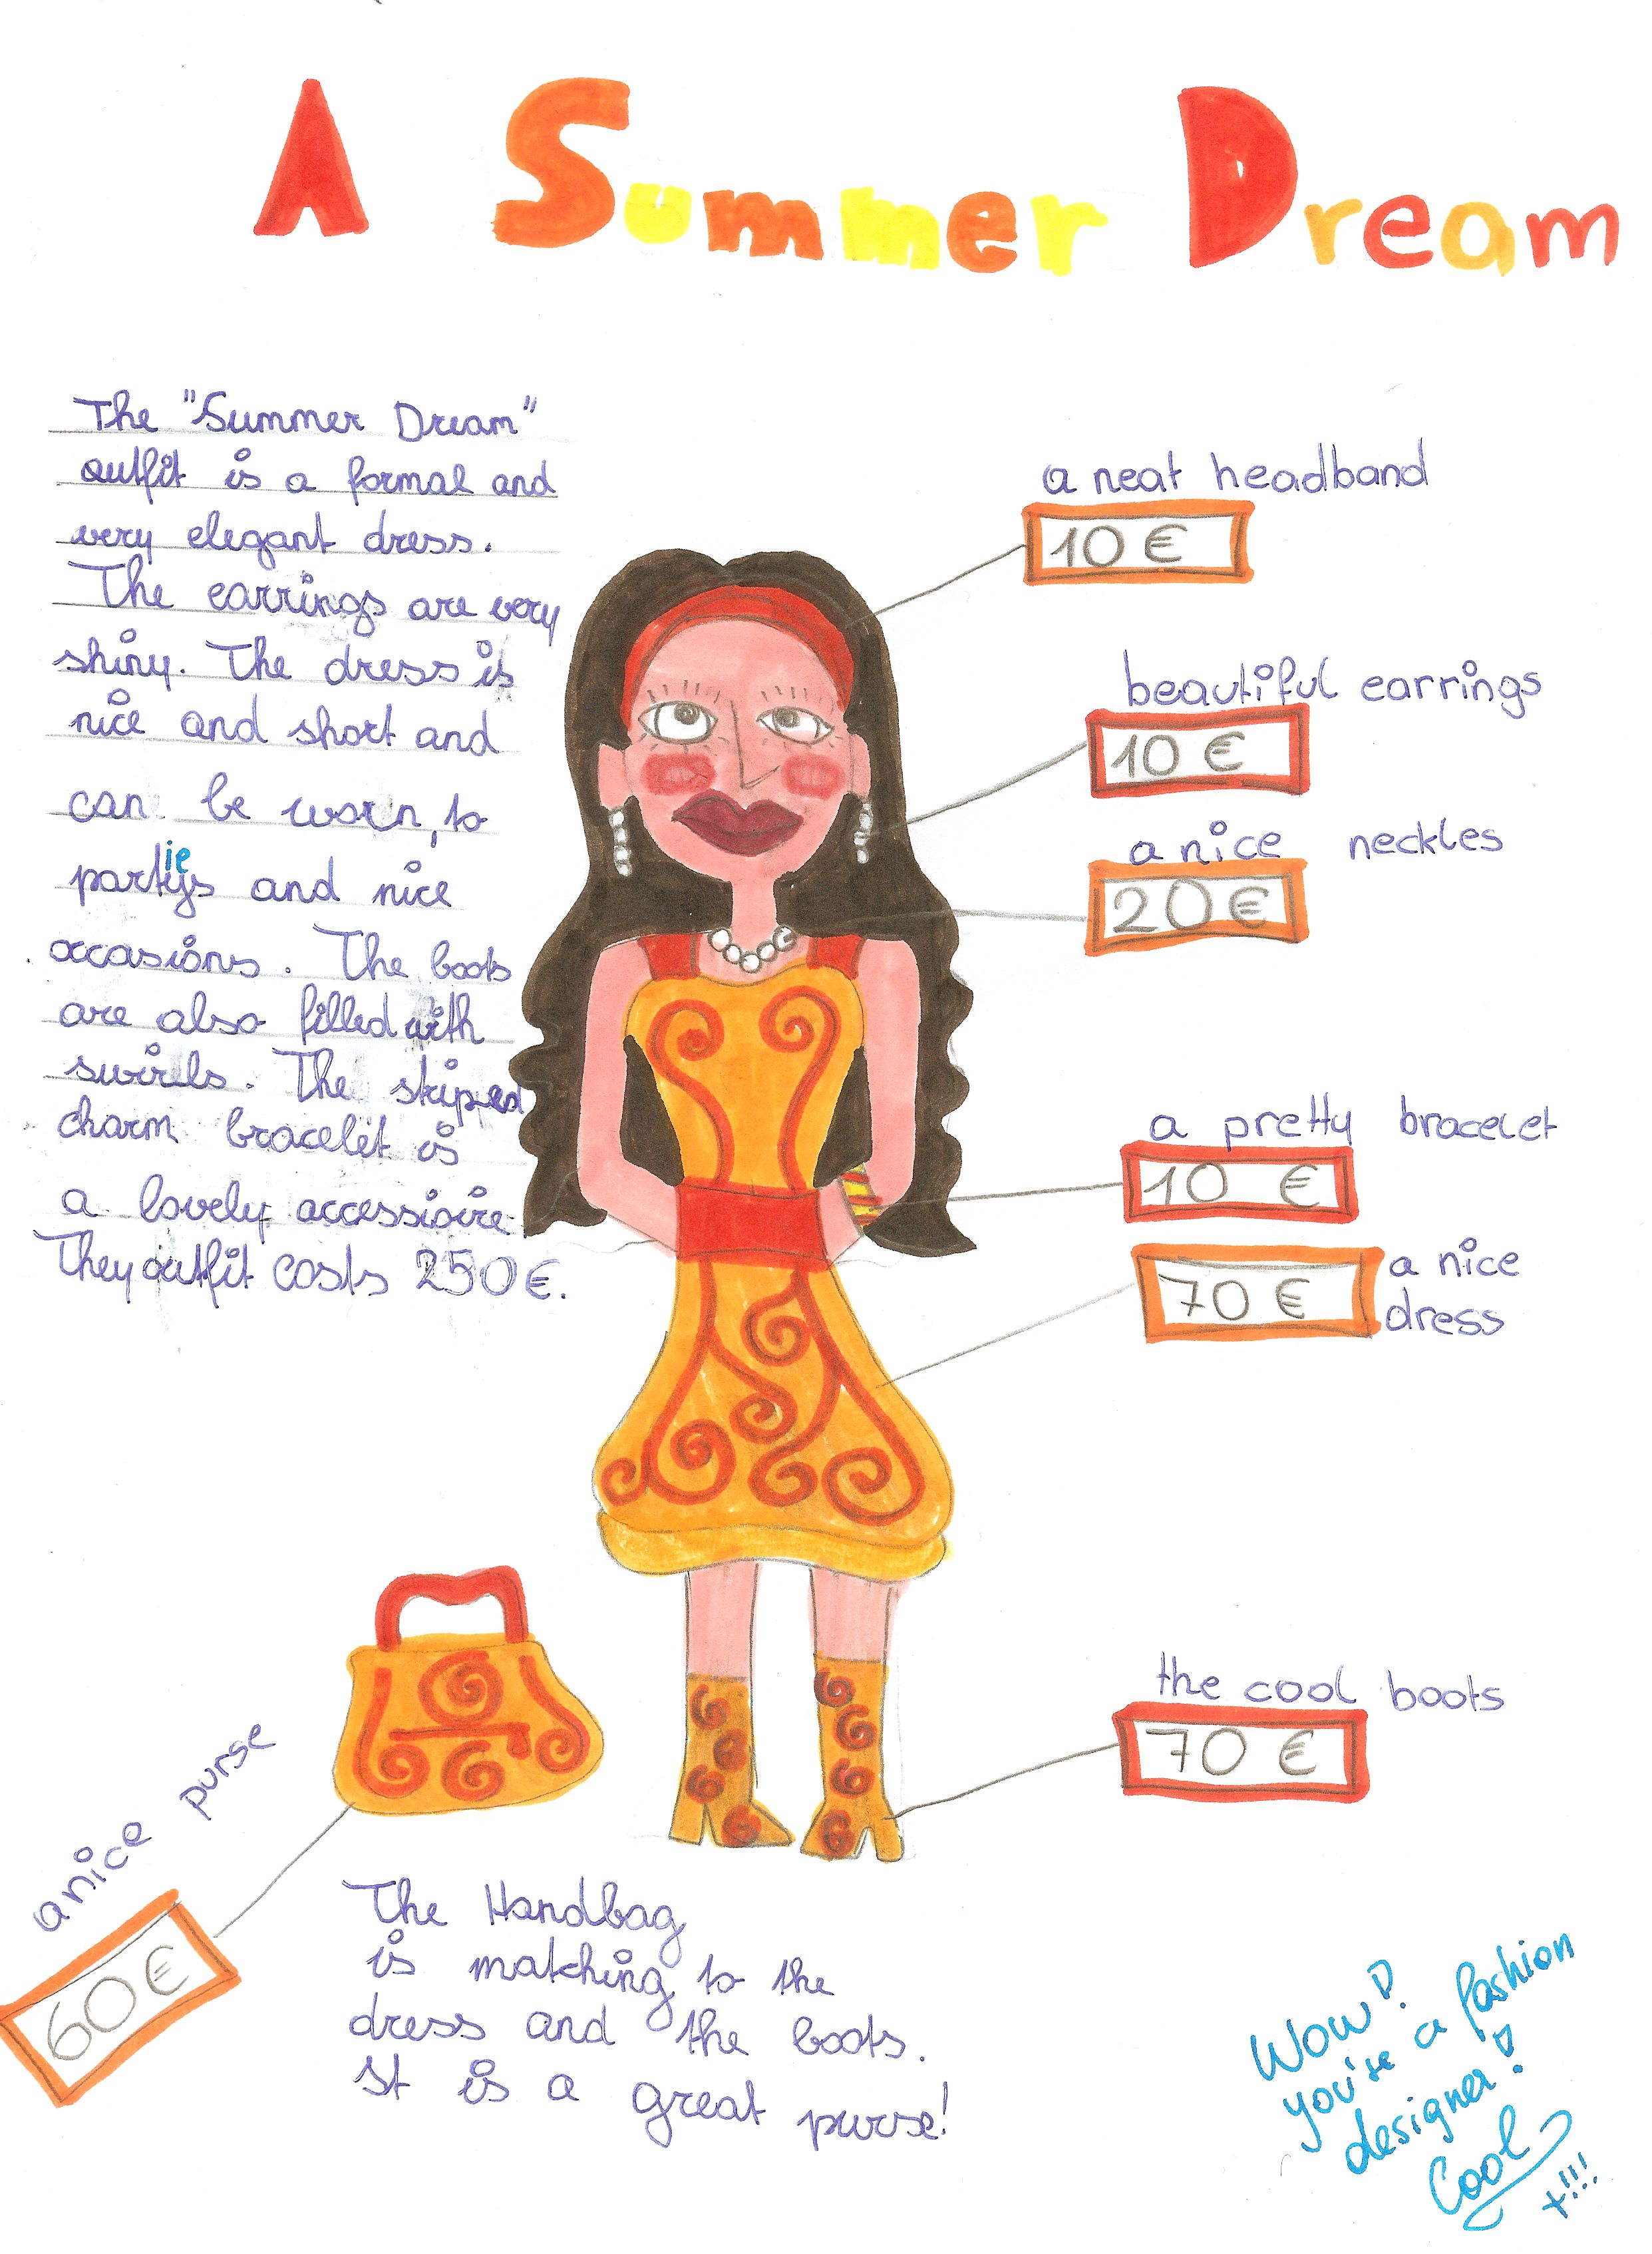 A Summer Dream
The "Summer Dream"
outfit is a formal and
very elegant dress.
The earrings are very
shiny. The dress is
nice and short and
can be worn, to
partys and nice
ie
occasions. The boots
are also filled with
swirls. The striped
charm bracelet is
a lovely accessioire.
They outfit costs 250€.
a neat headband
10 €
beautiful earrings
10 €
a nice neckles
20€
a pretty bracelet
10 €
70 €
a nice
dress
the cool boots
70 €
a nice purse
60€
The Handbag
is matching to the
dress and the boots.
It is a great purse!
Wow!
you're a fashion
designer!
Cool
+!!!